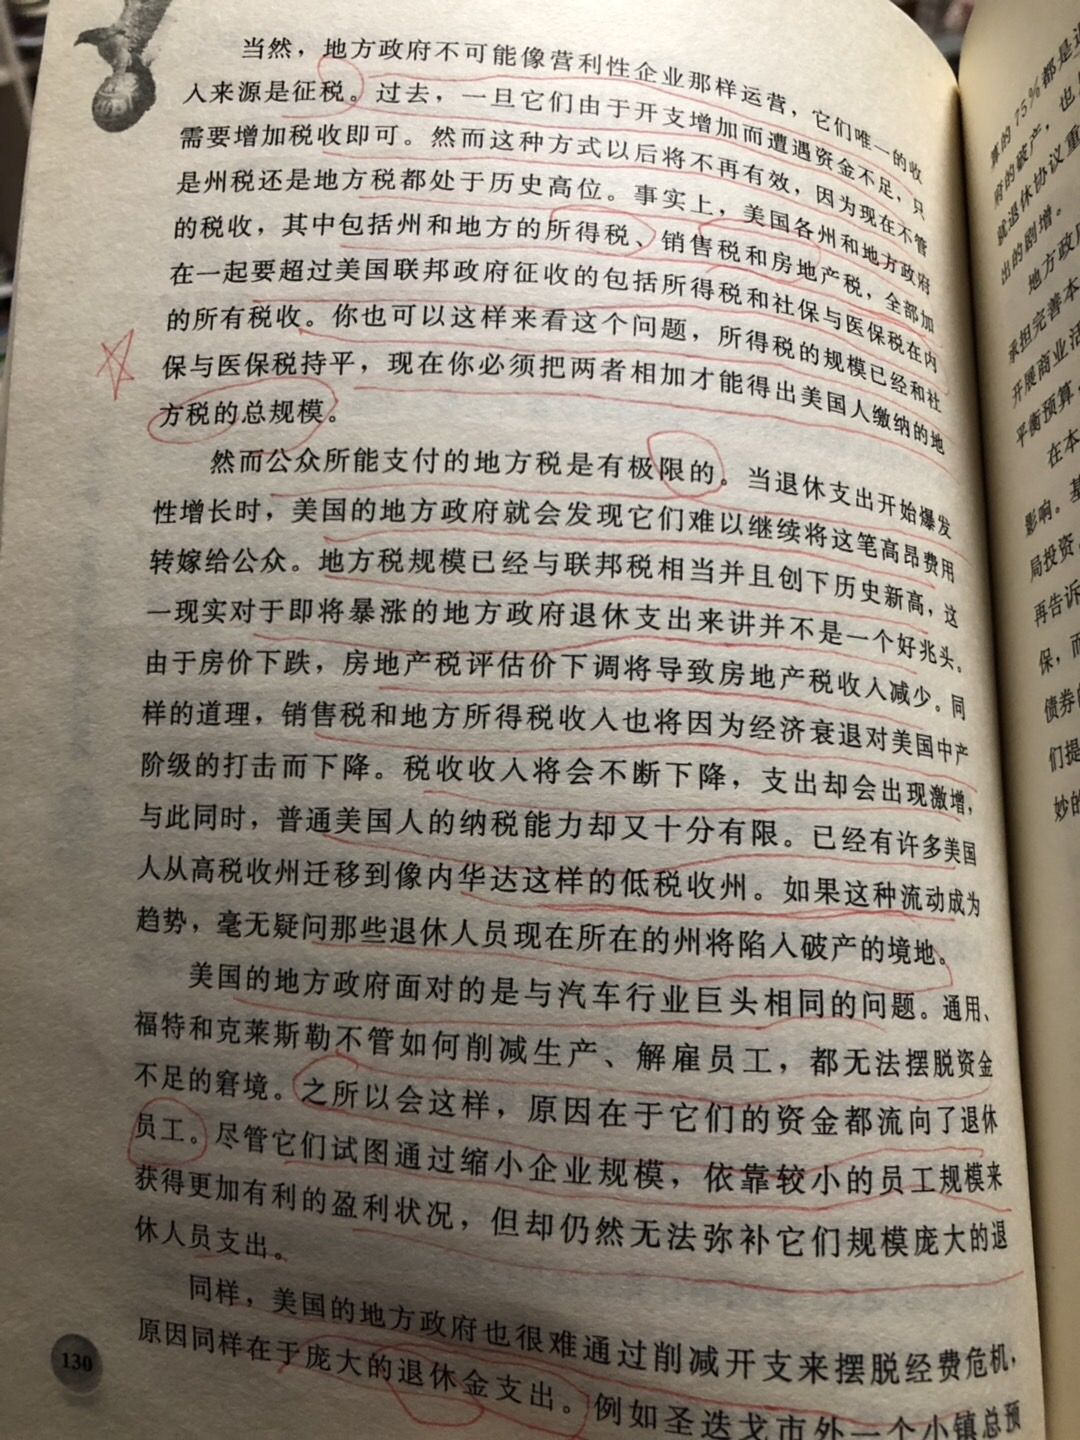 当然，地方政府不可能像营利性企业那样运营，它们唯一的收
入来源是征税。过去，一旦它们由于开支增加而遭遇资金不足，只
需要增加税收即可。然而这种方式以后将不再有效，因为现在不管
是州税还是地方税都处于历史高位。事实上，美国各州和地方政府
的税收，其中包括州和地方的所得税、销售税和房地产税，全部加
在一起要超过美国联邦政府征收的包括所得税和社保与医保税在内
的所有税收。你也可以这样来看这个问题，所得税的规模已经和社
保与医保税持平，现在你必须把两者相加才能得出美国人缴纳的地
方税的总规模。
然而公众所能支付的地方税是有极限的。当退休支出开始爆发
性增长时，美国的地方政府就会发现它们难以继续将这笔高昂费用
转嫁给公众。地方税规模已经与联邦税相当并且创下历史新高，这
一现实对于即将暴涨的地方政府退休支出来讲并不是一个好兆头。
由于房价下跌，房地产税评估价下调将导致房地产税收入减少。同
样的道理，销售税和地方所得税收入也将因为经济衰退对美国中产
阶级的打击而下降。税收收入将会不断下降，支出却会出现激增，
与此同时，普通美国人的纳税能力却又十分有限。已经有许多美国
人从高税收州迁移到像内华达这样的低税收州。如果这种流动成为
趋势，毫无疑问那些退休人员现在所在的州将陷入破产的境地。
美国的地方政府面对的是与汽车行业巨头相同的问题。通用、
福特和克莱斯勒不管如何削减生产、解雇员工，都无法摆脱资金
不足的窘境。之所以会这样，原因在于它们的资金都流向了退休
员工。尽管它们试图通过缩小企业规模，依靠较小的员工规模来
获得更加有利的盈利状况，但却仍然无法弥补它们规模庞大的退
休人员支出。
同样，美国的地方政府也很难通过削减开支来摆脱经费危机，
原因同样在于庞大的退休金支出。例如圣迭戈市外一个小镇总预
130
算的75%都是
府的破产，也
就退休协议重
出的剧增。
地方政
承担完善本
开展商业活
平衡预算，
在本
影响。基
局投资，
再告诉
保，而
债券
们提
妙的